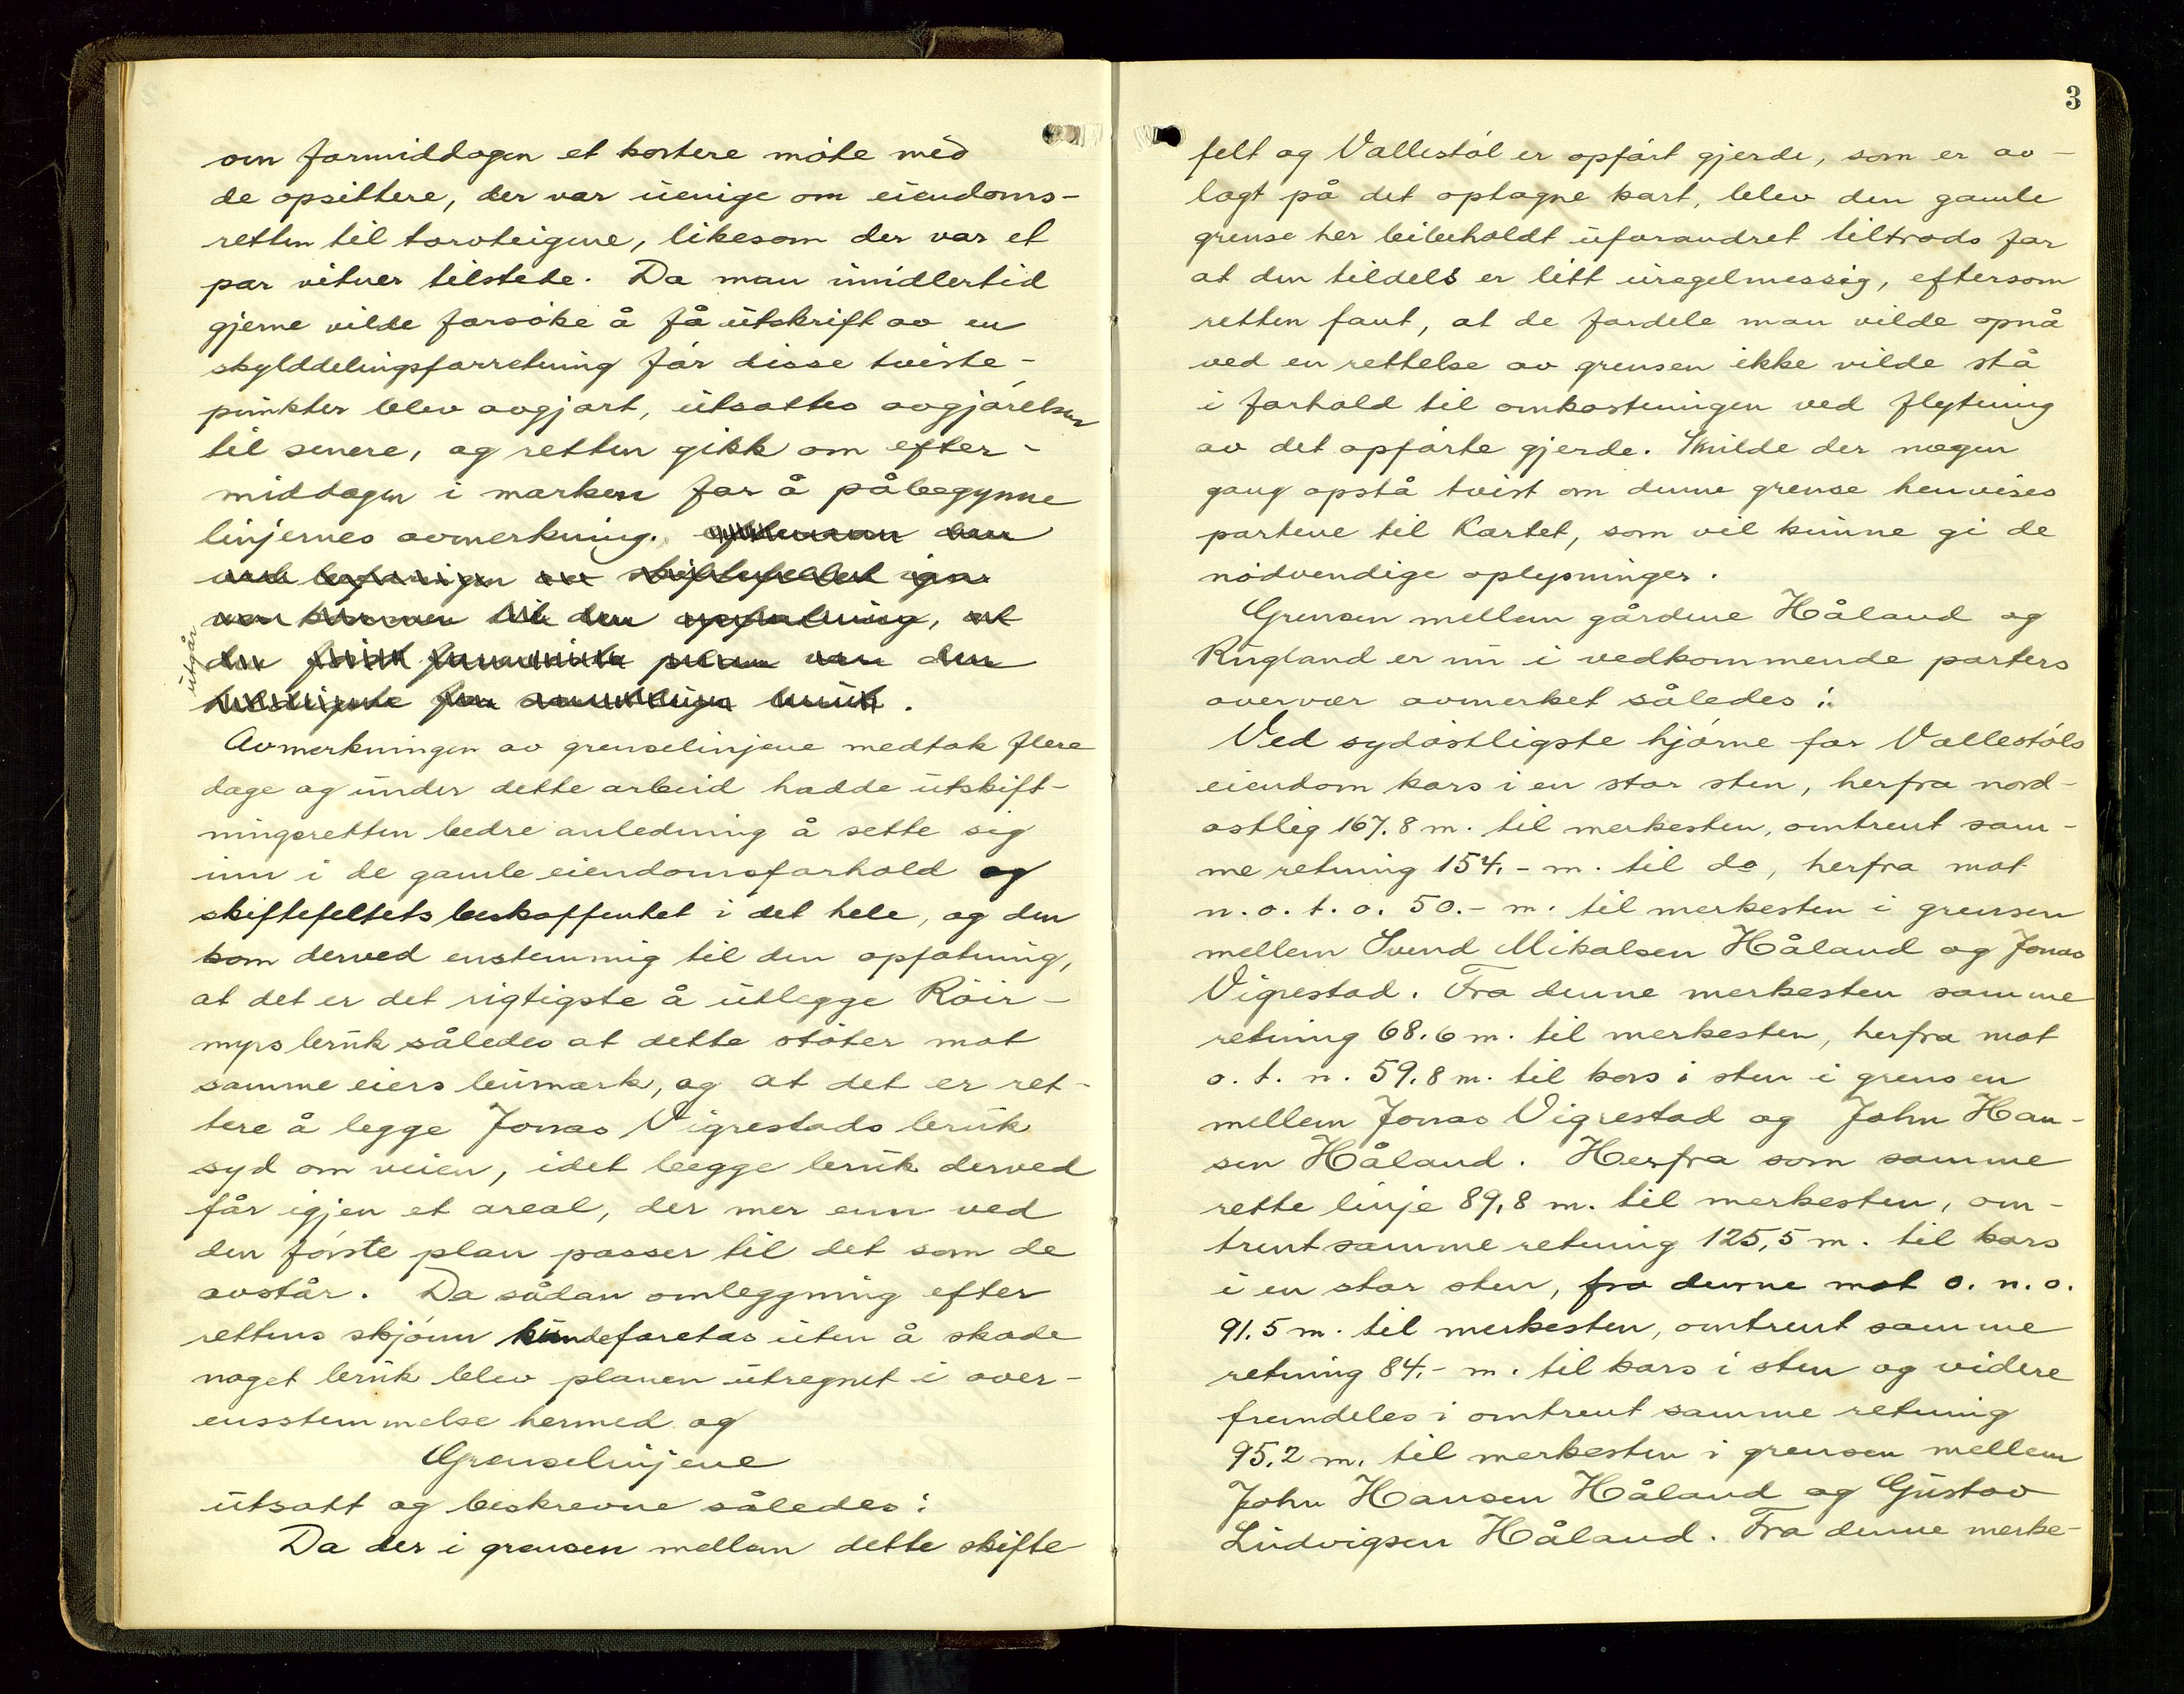 om formiddagen et kortere møte med
de opsittere, der var uenige om eiendoms-
retten til torvteigene, likesom der var et
par vitner tilstede. Da man imidlertid
gjerne vilde forsøke å få utskrift av en
skylddelingsforretning før disse tviste-
punkter blev avgjort, utsattes avgjørelsen
til senere, og retten gikk om efter-
middagen i marken for å påbegynne
linjernes avmerkning.
utgår
Avmerkningen av grenselinjene medtok flere
dage og under dette arbeid hadde utskift-
ningsretten bedre anledning å sette sig
inn i de gamle eiendomsforhold og
skiftefeltets beskaffenhet i det hele, og den
kom derved enstemmig til den opfatning,
at det er det rigtigste å utlegge Röir-
myrs bruk således at dette støter mot
samme eiers bumark, og at det er ret-
tere å legge Jonas Vigrestads bruk
syd om veien, idet begge bruk derved
får igjen et areal, der mer enn ved
den første plan passer til det som de
avstår. Da sådan omleggning efter
rettens skjønn kunde foretas uten å skade
noget bruk blev planen utregnet i over-
ensstemmelse hermed og
Grenselinjene
utsatt og beskrevne således:
Da der i grensen mellem dette skifte
3
felt og Vallestøl er opført gjerde, som er av-
lagt på det optagne kart, blev den gamle
grense her beibeholdt uforandret tiltrods for
at den tildels er litt uregelmessig, eftersom
retten fant, at de fordele man vilde opnå
ved en rettelse av grensen ikke vilde stå
i forhold til omkostningen ved flytning
av det opførte gjerde. Skulde der nogen
gang opstå tvist om denne grense henvises
partene til Kartet, som vil kunne gi de
nødvendige oplysninger.
Grensen mellem gårdene Håland og
Rugland er nu i vedkommende parters
overvær avmerket således:
Ved sydøstligste hjørne for Vallestøls
eiendom kors i en stor sten, herfra nord-
østlig 167.8 m. til merkesten, omtrent sam-
me retning 154.- m. til do, herfra mot
n.o.t.o. 50.- m. til merkesten i grensen
mellem Svend Mikalsen Håland og Jonas
Vigrestad. Fra denne merkesten samme
retning 68.6 m. til merkesten, herfra mot
o.t.n. 59.8 m. til kors i sten i grensen
mellem Jonas Vigrestad og John Han-
sen Håland. Herfra som samme
rette linje 89,8 m. til merkesten, om-
trent samme retning 125,5 m. til kors
i en stor sten, fra denne mot o.n.o.
91.5 m. til merkesten, omtrent samme
retning 84.- m. til kors i sten og videre
fremdeles i omtrent samme retning
95.2 m. til merkesten i grensen mellem
John Hansen Håland og Gustav
Ludvigsen Håland. Fra denne merke-